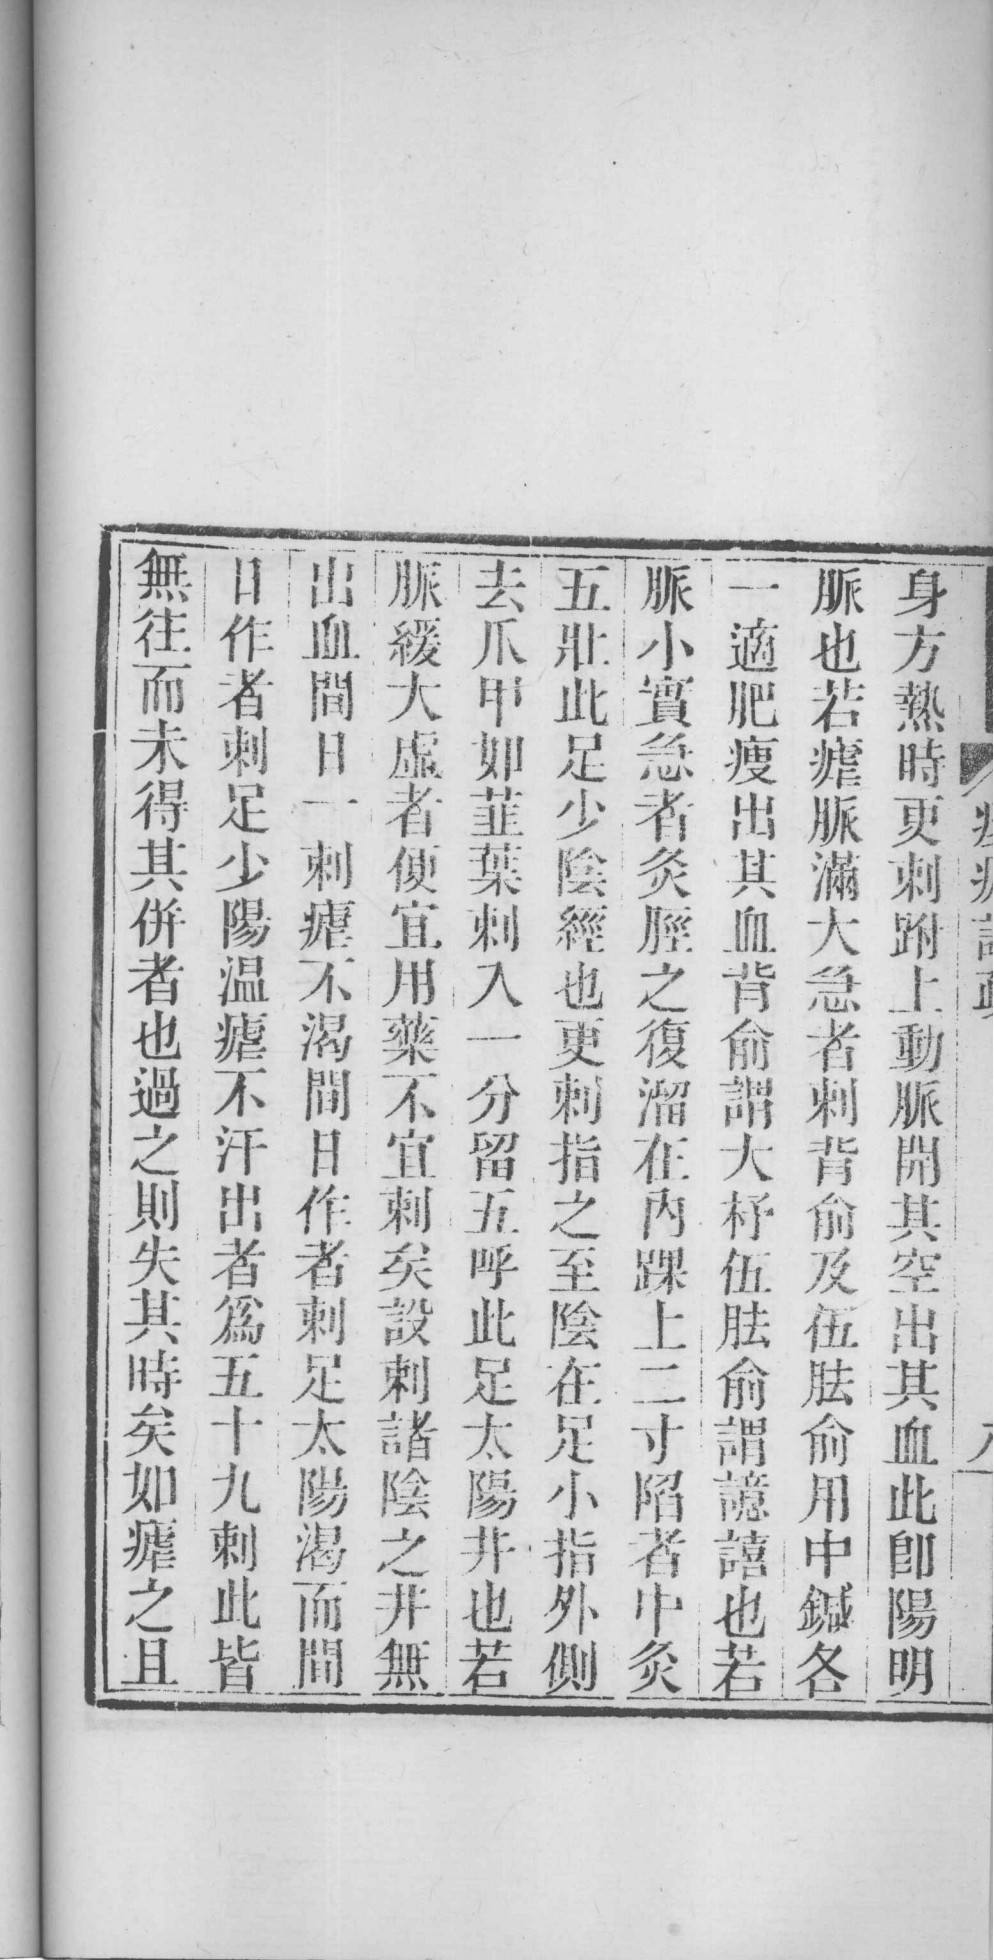 身方熱時更刺跗上動脈開其空出其血此卽陽明
脈也若瘧脈滿大急者刺背俞及伍胠俞用中鍼各
一適肥瘦出其血背俞謂大杼伍胠俞謂譩譆也若
脈小實急者灸脛之復溜在內踝上二寸陷者中灸
五壯此足少陰經也更刺指之至陰在足小指外側
去爪甲如韮葉刺入一分留五呼此足太陽井也若
脈緩大虛者便宜用藥不宜刺矣設刺諸陰之井無
出血間日一刺瘧不渴間日作者刺足太陽渴而間
日作者刺足少陽温瘧不汗出者爲五十九刺此皆
無往而未得其併者也過之則失其時矣如瘧之且